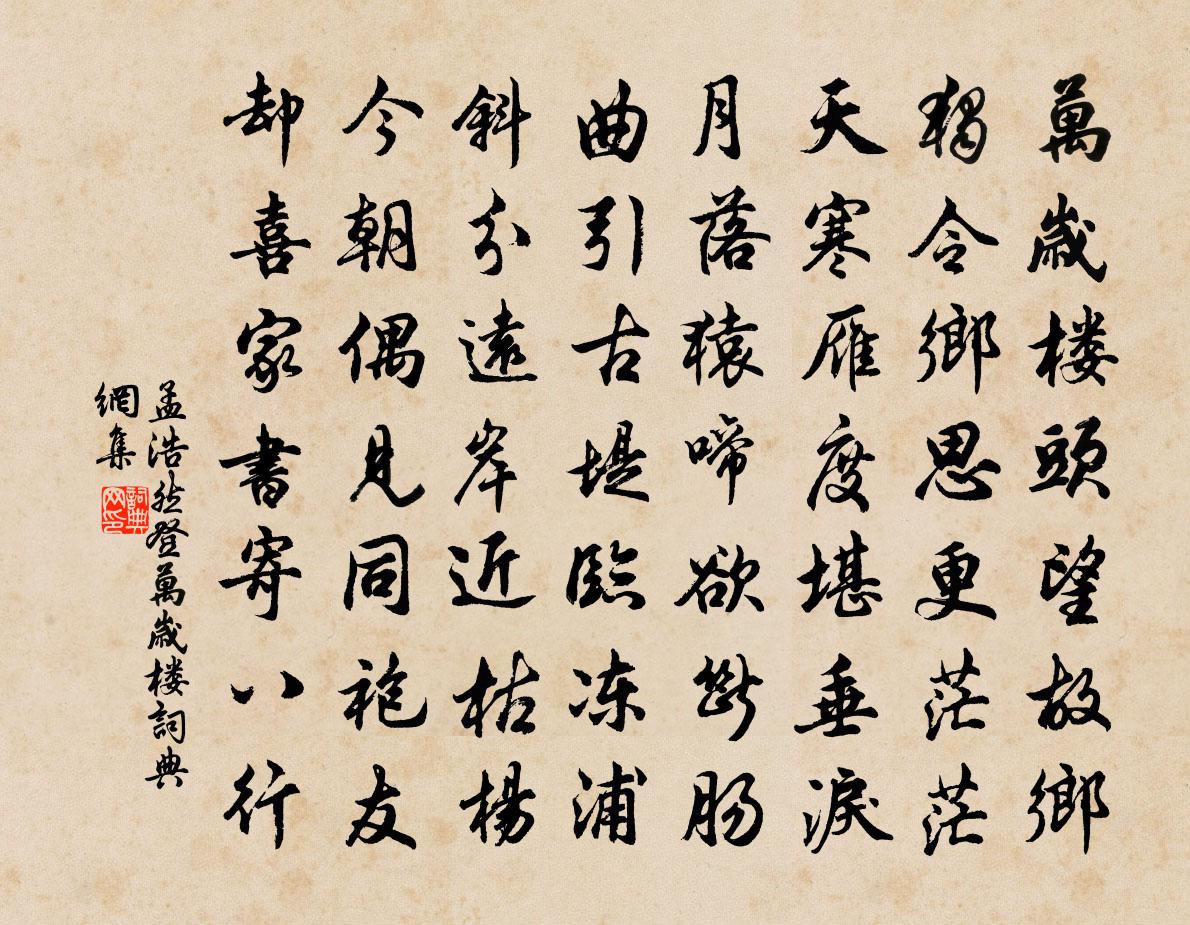 萬歲楼頭望故鄉
獨令鄉思更茫茫
天寒雁度堪垂淚
月落猿啼欲斷腸
曲引古堤臨冻浦
斜分遠岸近枯楊
今朝偶見同袍友
却喜家書寄八行
孟浩然登萬歲楼詞典
網集
詞典
网印